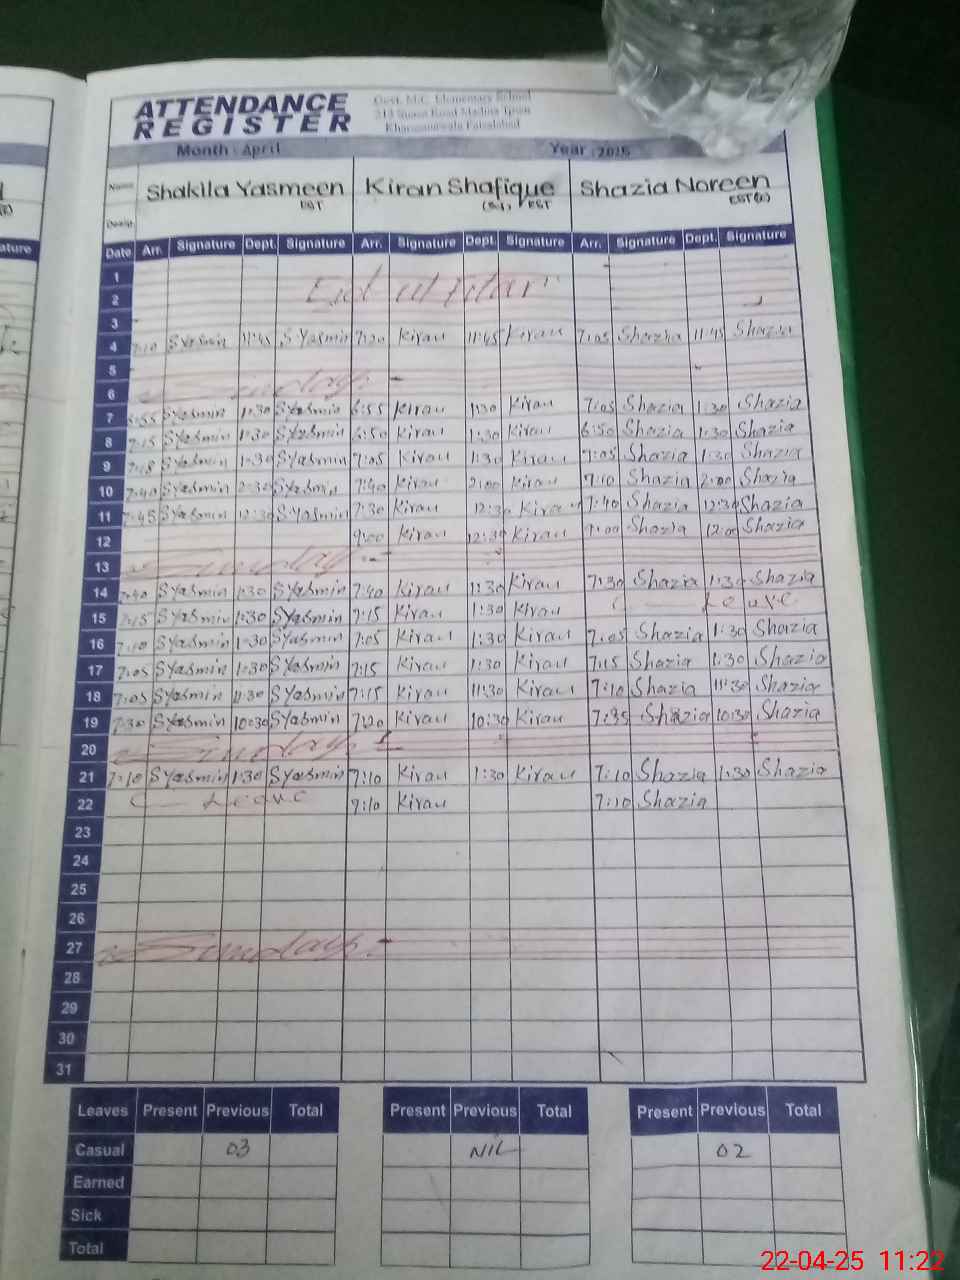 ATTENDANCE
REGISTER
Govt. M.C. Elementary School
213 Susan Road Madina Town
Faisalabad
Month : April Year : 2025
Name Shakila Yasmeen Kiran Shafique Shazia Noreen
Desig. EST EST
Date Arr. Signature Dept. Signature Arr. Signature Dept. Signature Arr. Signature Dept. Signature
1
2 Eid ul fitar
3
4 7:10 SYasmin 11:45 SYasmin 7:20 Kiran 11:45 Kiran 7:05 Shazia 11:45 Shazia
5
6 Sunday
7 6:55 SYasmin 1:30 SYasmin 6:55 Kiran 1:30 Kiran 7:05 Shazia 1:30 Shazia
8 7:15 SYasmin 1:30 SYasmin 6:50 Kiran 1:30 Kiran 6:50 Shazia 1:30 Shazia
9 SYasmin 1:30 SYasmin 7:05 Kiran 1:30 Kiran 7:05 Shazia 1:30 Shazia
10 7:40 SYasmin 2:30 SYasmin 7:40 Kiran 2:00 Kiran 7:10 Shazia 2:00 Shazia
11 7:45 SYasmin 12:30 SYasmin 7:30 Kiran 12:30 Kiran 7:40 Shazia 12:30 Shazia
12 9:00 Kiran 12:30 Kiran 9:00 Shazia 12:00 Shazia
13 Sunday
14 7:40 SYasmin 1:30 SYasmin 7:40 Kiran 1:30 Kiran 7:30 Shazia 1:30 Shazia
15 7:15 SYasmin 1:30 SYasmin 7:15 Kiran 1:30 Kiran C — Leave
16 7:10 SYasmin 1:30 SYasmin 7:05 Kiran 1:30 Kiran 7:05 Shazia 1:30 Shazia
17 7:05 SYasmin 1:30 SYasmin 7:15 Kiran 1:30 Kiran 7:15 Shazia 1:30 Shazia
18 7:05 SYasmin 11:30 SYasmin 7:15 Kiran 11:30 Kiran 7:10 Shazia 11:30 Shazia
19 7:30 SYasmin 10:30 SYasmin 7:20 Kiran 10:30 Kiran 7:35 Shazia 10:30 Shazia
20 Sunday
21 7:10 SYasmin 1:30 SYasmin 7:10 Kiran 1:30 Kiran 7:10 Shazia 1:30 Shazia
22 C — Leave 7:10 Kiran 7:10 Shazia
23
24
25
26
27 Sunday
28
29
30
31
Leaves Present Previous Total Present Previous Total Present Previous Total
Casual 03 NIL 02
Earned
Sick
Total
22-04-25 11:22